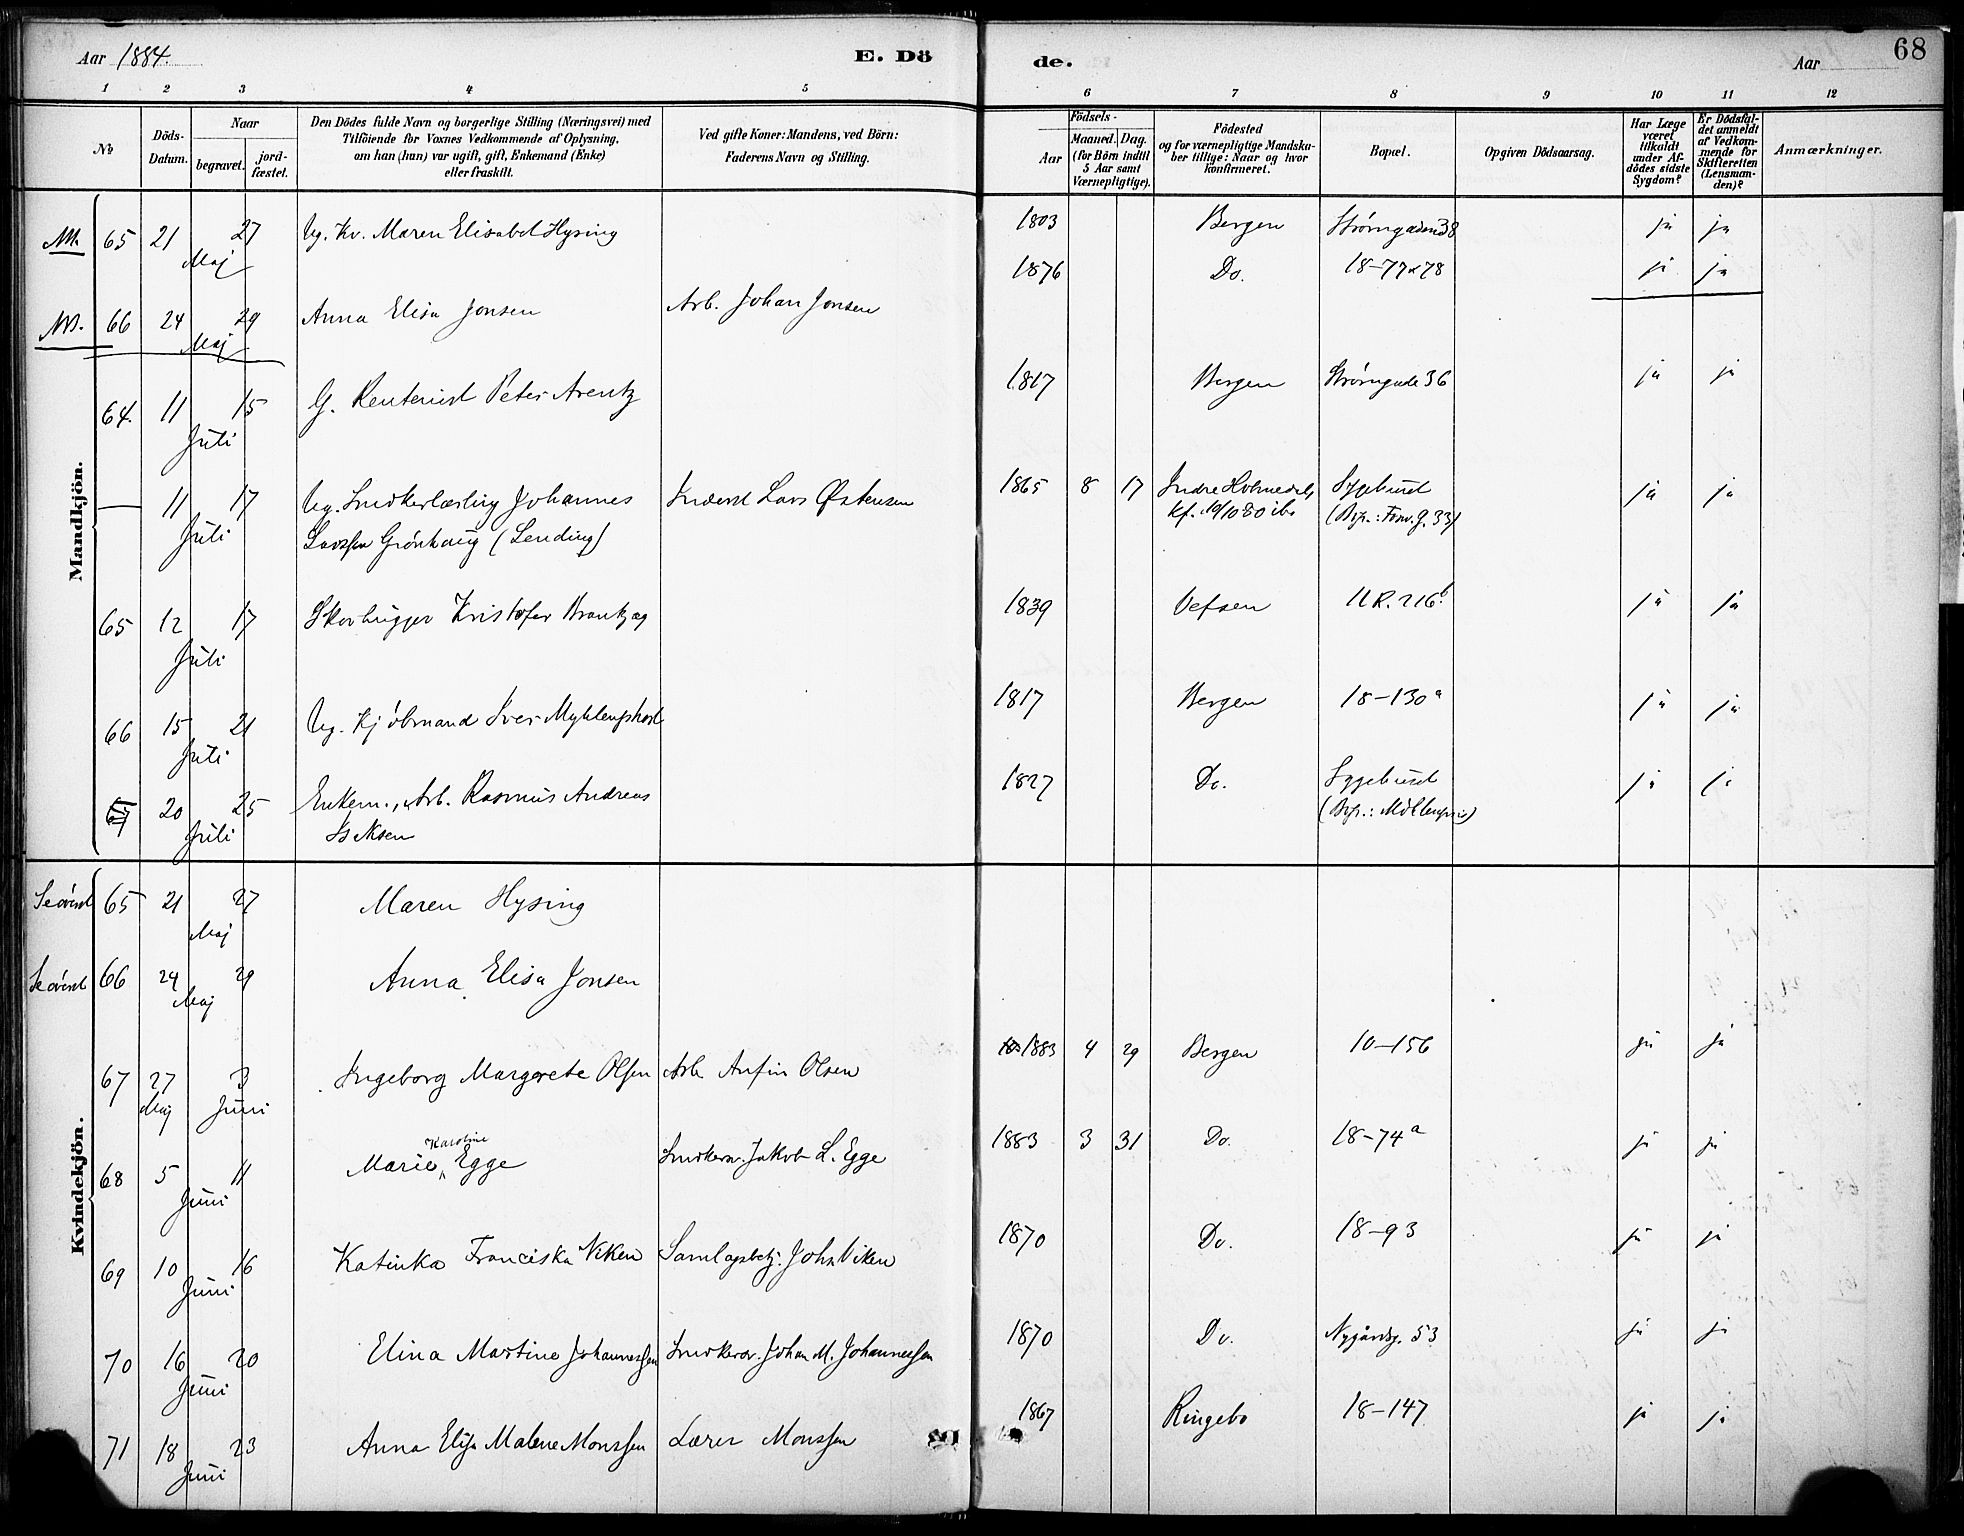 Aar 1884. E. Dö de. Aar 68
1 2 3 4 5 6 7 8 9 10 11 12
№
Döds-Datum.
Naar
begravet.
jord-fæstet.
Den Dödes fulde Navn og borgerlige Stilling (Næringsvei) med
Tilföiende for Voxnes Vedkommende af Oplysning,
om han (hun) var ugift, gift, Enkemand (Enke)
eller fraskilt.
Ved gifte Koner: Mandens, ved Börn:
Faderens Navn og Stilling.
Födsels-
Aar
Maaned. Dag.
(for Börn indtil
5 Aar samt
Værnepligtige).
Födested
og for værnepligtige Mandska-
ber tillige: Naar og hvor
konfirmeret.
Bopæl.
Opgiven Dödsaarsag.
Har Læge
været
tilkaldt
under Af-
dödes sidste
Sygdom?
Er Dödsfal-
det anmeldt
af Vedkom-
mende for
Skifteretten
(Lensman-
den)?
Anmærkninger.
Mandkjön.
65 21 27 Ug. Kv. Maren Elisabet Hysing 1803 Bergen Strømgaden 38 ja ja
Maj
66 24 29 Anna Elisa Jonsen Arb. Johan Jonsen 1876 Do. 18-77 78 ja ja
Maj
64. 11 15 G. Rentenist Peter Arentz 1817 Bergen Strømgade 36 ja ja
Juli
— 11 17 Ug. Snedkerlærling Johannes Inderst Lars Østensen 1865 8 17 Indre Holmedal, Sygehuset ja ja
Juli Larssen Grønhaug (Lending) kf. 10/10 80 ibo (Bop.: Fosw.g. 33)
65 12 17 Skovhugger Kristofer 1839 Vefsen UR. 216b. ja ja
Juli
66 15 21 Ug. Kjøbmand Iver 1817 Bergen 18-130a ja ja
Juli
67 20 25 Enkem., Arb. Rasmus Andreas 1827 Do. Sygehuset ja ja
Juli Isaksen (Bop.: Møhlenpris)
Kvindekjön.
Se øverst 65 21 27 Maren Hysing
Maj
Se øverst 66 24 29 Anna Elisa Jonsen
Maj
67 27 3 Ingeborg Margrete Olsen Arb. Anfin Olsen 1883 4 29 Bergen 10-156 ja ja
Maj Juni
68 5 11 Marie Karoline Egge Snedkersv. Jakob L. Egge 1883 3 31 Do. 18-74a ja ja
Juni
69 10 16 Katinka Franciska Viken Samlagsbetj. Johs Viken 1870 Do. 18-93 ja ja
Juni
70 16 20 Elina Martine Johannessen Snedkersv. Johan M. Johannessen 1870 Do. Nygårdsg. 53 ja ja
Juni
71 18 23 Anna Elise Malene Monssen Lærer Monssen 1867 Ringebo 18-147 ja ja
Juni